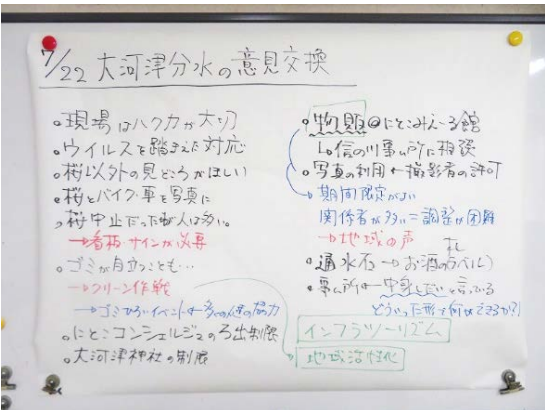 7/22 大河津分水の意見交換
。現場はハク力が大切
。ウイルスを踏まえた対応
。桜以外の見どころがほしい
。桜とバイク・車を写真に
。桜中止だったが人は多い。
→看板・サインが必要
。ゴミが目立つことも…
→クリーン作戦
→ゴミひろいイベントは多くの人の協力
。にとこコンシェルジュの
。大河津神社の制限
。物販@にとこみえ〜る館
↳信の川事ム所に相談
。写真の利用←撮影者の許可
→期間限定がよい
関係者が多い=調整が困難
→地域の声
。通水石→お酒の(ラベル)
札
。事ム所は
どういった形で何ができるか?
インフラツーリズム
地域活性化